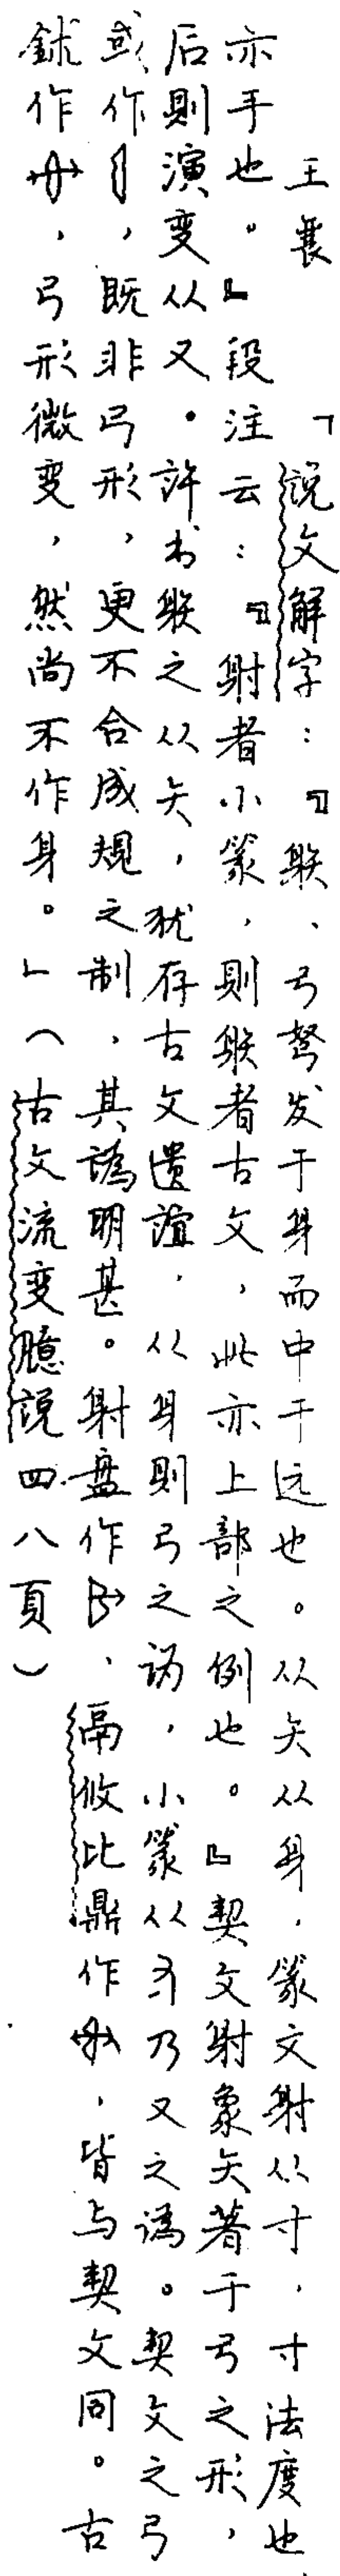 王襄　「说文解字：『躲、弓弩发于身而中于远也。从矢从身，篆文射从寸，寸法度也，
亦手也。』段注云：『射者小篆，则躲者古文，此亦上部之例也。』契文射象矢著于弓之形，
后则演变从又。许书躲之从矢，犹存古文遗谊，从身则弓之讹，小篆从寸乃又之譌。契文之弓
或作，既非弓形，更不合成规之制，其譌明甚。射盘作，鬲攸比鼎作，皆与契文同。古
鉥作，弓形微变，然尚不作身。」（古文流变臆说四八頁）